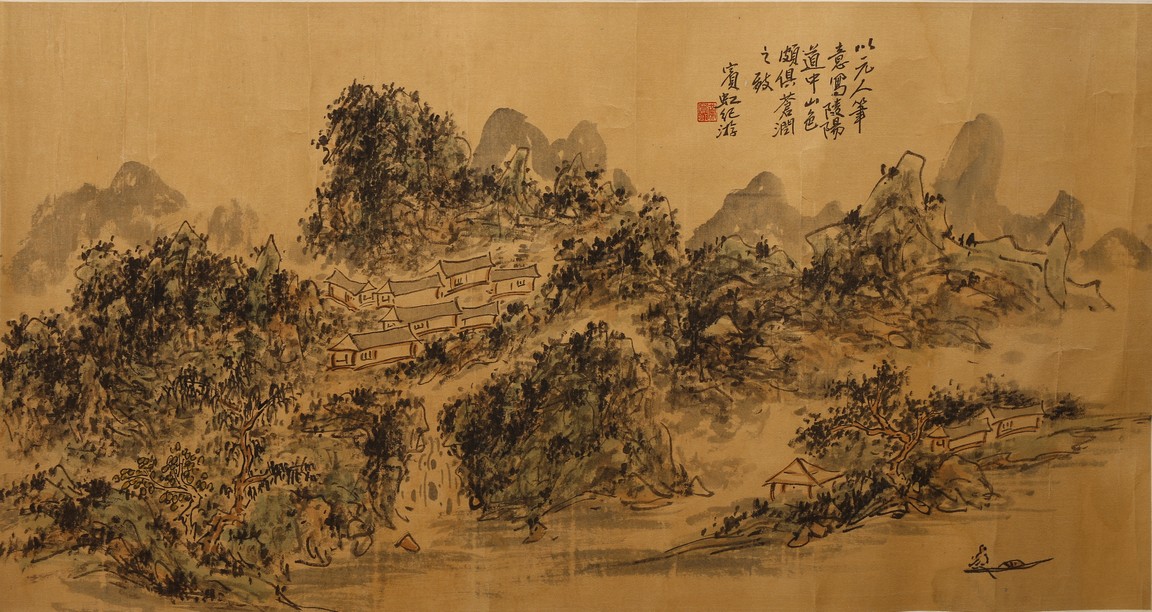 以元人筆
意寫陵陽
道中山色
頗俱蒼潤
之致
賓虹紀游